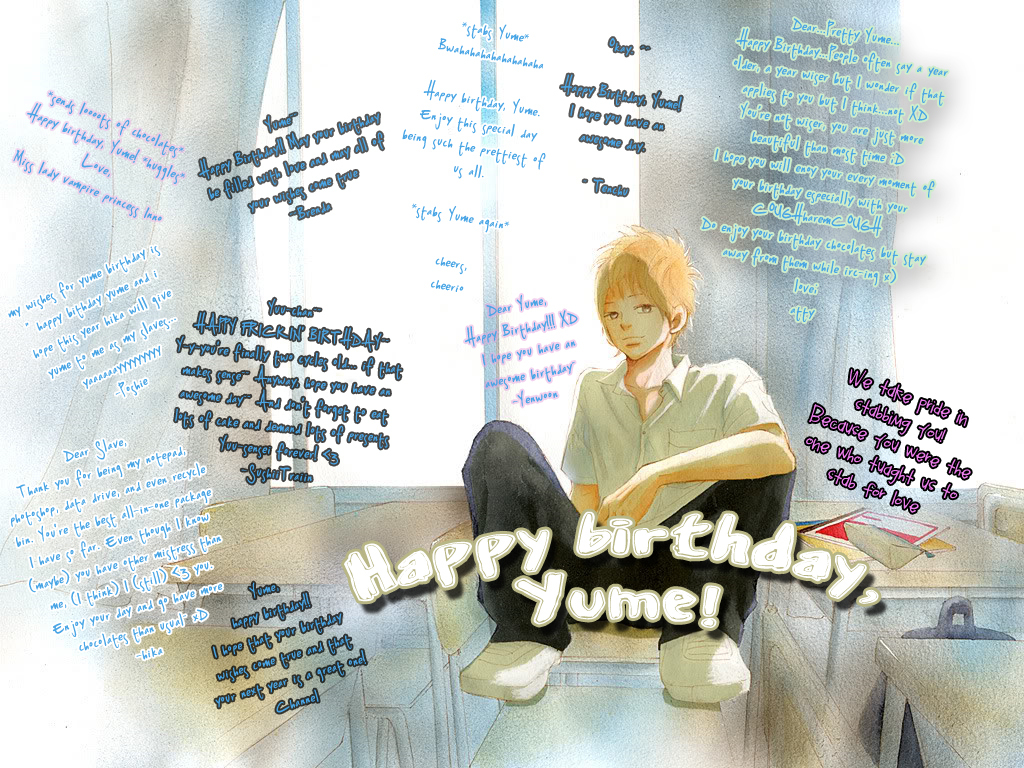 *sends loooots of chocolates*
Happy birthday, Yume! *huggles*
Love,
Miss lady vampire princess Inna
Yume~
Happy Birthday!! May your birthday
be filled with love and may all of
your wishes come true
~Brenda
*stabs Yume*
Bwahahahahahahahaha
Happy birthday, Yume.
Enjoy this special day
being such the prettiest of
us all.
*stabs Yume again*
cheers,
cheerio
Okay. ~
Happy Birthday, Yume!
I hope you have an
awesome day.
- Tenchu
Dear...Pretty Yume...
Happy Birthday...People often say a year
older, a year wiser but I wonder if that
applies to you but I think...not XD
You're not wiser, you are just more
beautiful than most time :D
I hope you will enoy your every moment of
your birthday especially with your
COUGHharemCOUGH
Do enjoy your birthday chocolates but stay
away from them while irc-ing x)
love;
~tty
my wishes for yume birthday is
" happy bithday yume and i
hope this year hika will give
yume to me as my slaves~~
yaaaaayyyyyyy
-Poshie
Yuu-chan~~
HAPPY FRICKIN' BIRTHDAY~
Y-y-you're finally two cycles old... if that
makes sense~ Anyway, hope you have an
awesome day~ And don't forget to eat
lots of cake and demand lots of presents
Yuu-sensei forever! <3
~SushiiTraiin
Dear Yume,
Happy Birthday!!! XD
I hope you have an
awesome birthday~
~Yenwoon
We take pride in
stabbing you!
Because you were the
one who tuught us to
stab for love
Dear Slave,
Thank you for being my notepad,
photoshop, data drive, and even recycle
bin. You're the best all-in-one package
I have so far. Even though I know
(maybe) you have other mistress than
me, (I think) I (still) <3 you.
Enjoy your day and go have more
chocolates than usual~ xD
~hika
Yume,
happy birthday!!
I hope that your birthday
wishes come true and that
your next year is a great one!
Channel
Happy birthday,
Yume!